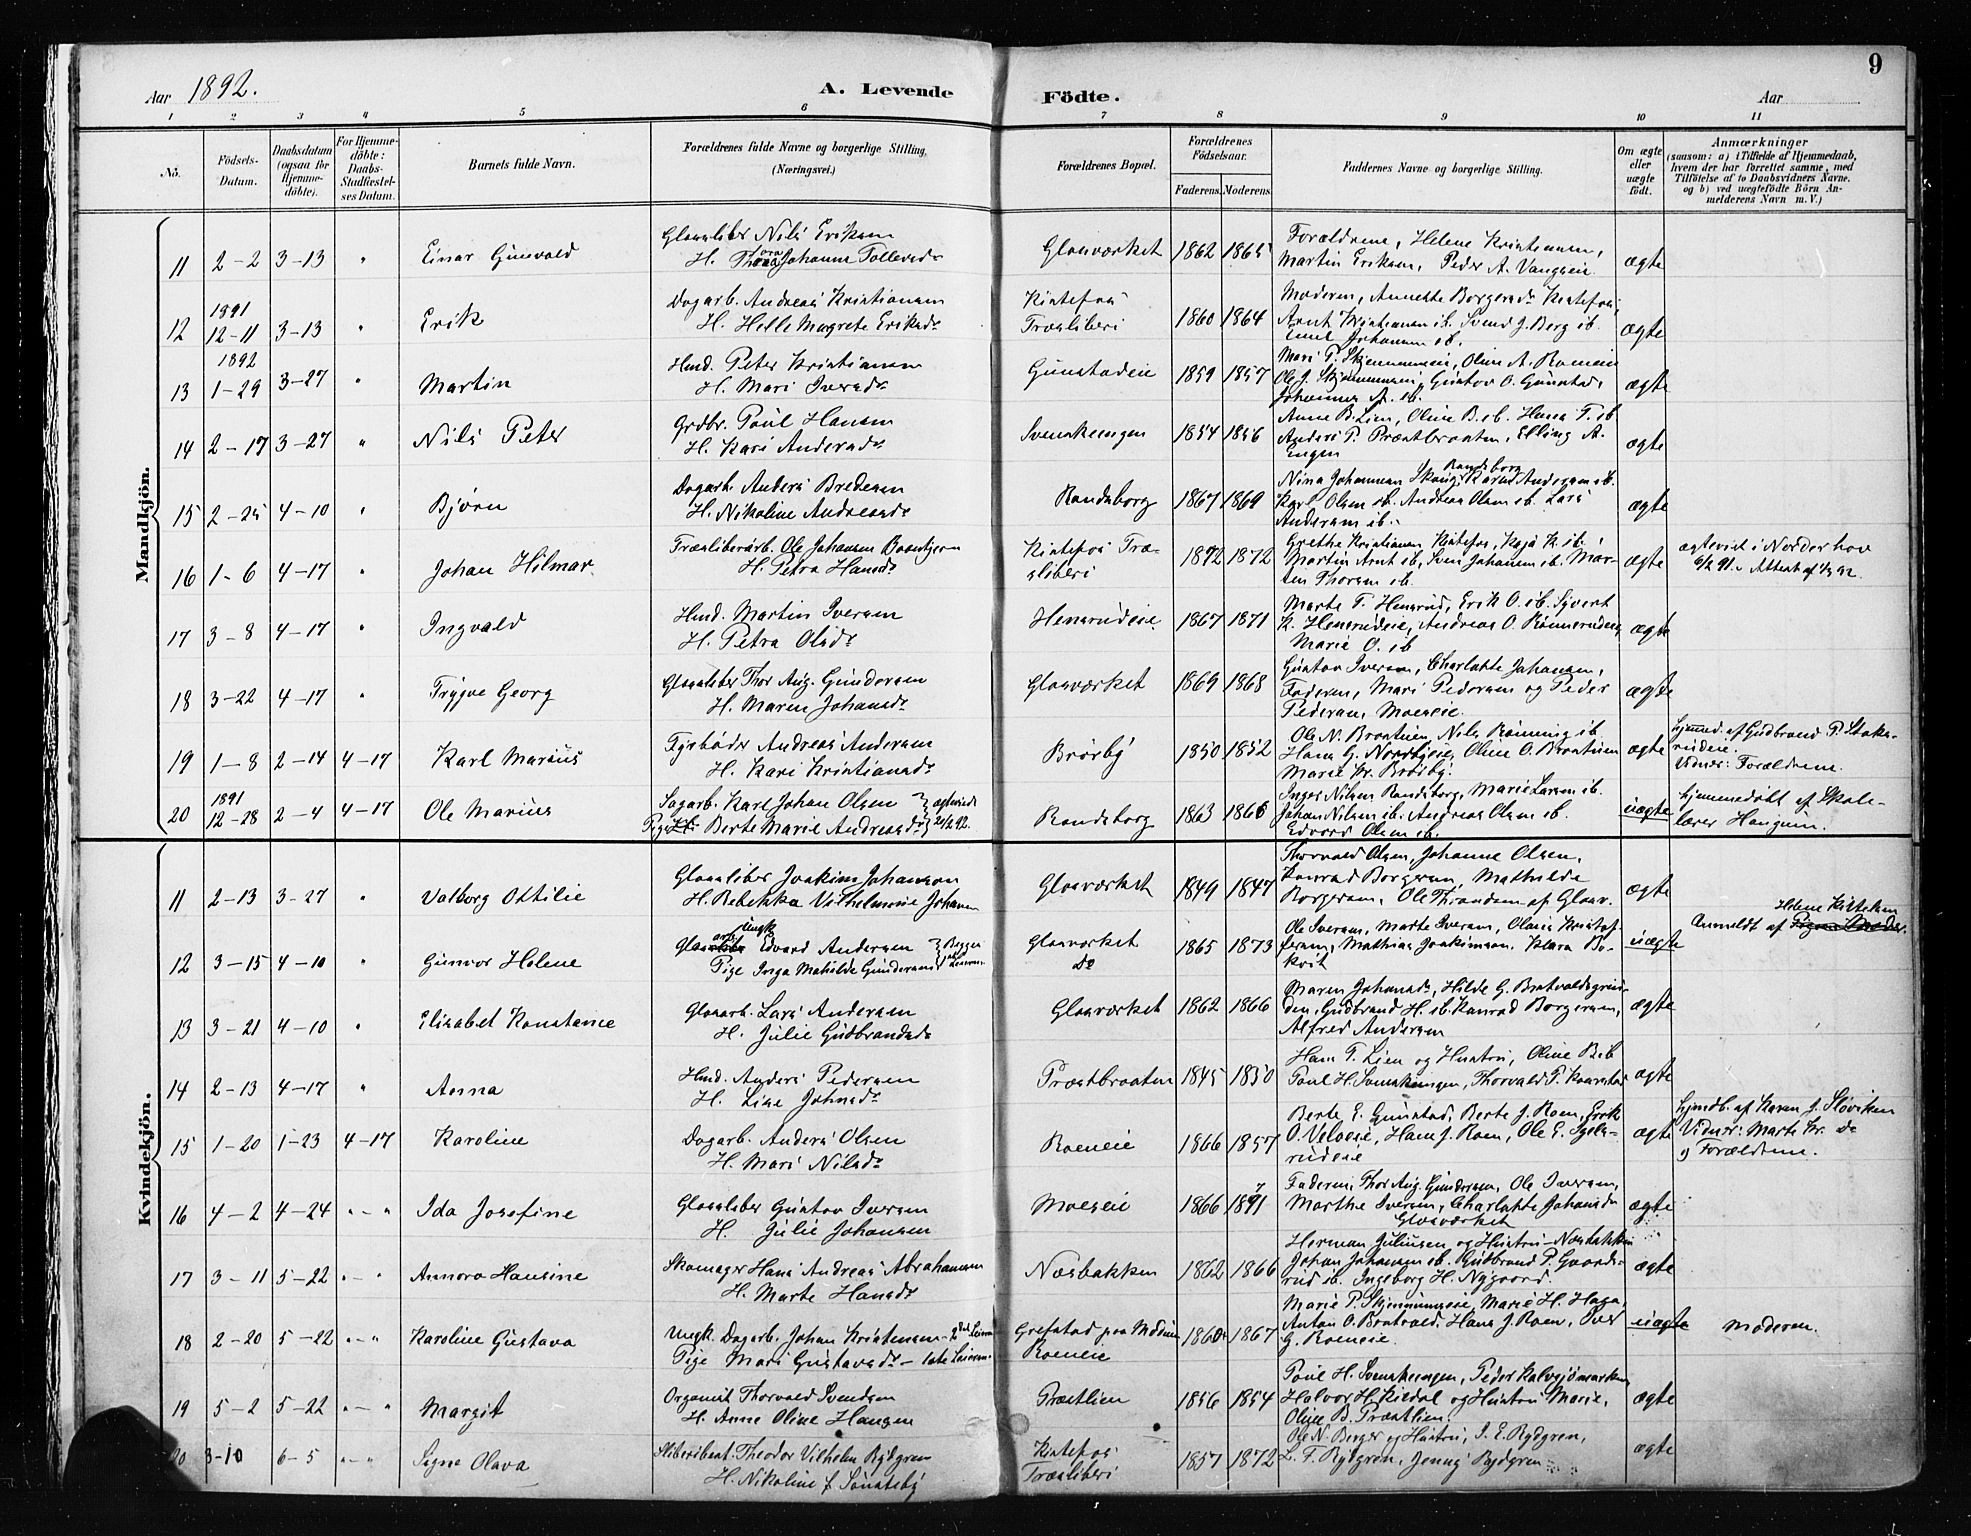 Aar 1892. A. Levende Födte. Aar 9
1 2 3 4 5 6 7 8 9 10 11
No. Födsels-Datum. Daabsdatum (ogsaa for Hjemme-döbte). For Hjemme-döbte: Daabs-Stadfæstel-ses Datum. Barnets fulde Navn. Forældrenes fulde Navne og borgerlige Stilling, (Næringsvei.) Forældrenes Bopæl. Forældrenes Födselsaar. Faderens. Moderens. Faddernes Navne og borgerlige Stilling. Om ægte eller uægte födt. Anmærkninger (saasom: a) i Tilfælde af Hjemmedaab, hvem der har forrettet samme, med Tilföielse af to Daabsvidners Navne, og b) ved uægtefödte Börn An-melderens Navn m. V.)
Mandkjön.
11 2-2 3-13 " Einar Gunvald Glassliber Nils Eriksen
H. Thora Johanne Tollevsdr Glasværket 1862 1865 Forældrene, Helene Kristensen,
Martin Eriksen, Peder A. Vangseie ægte
12 1891 12-11 3-13 " Erik Dagarb. Andreas Kristiansen
H. Helle Margrete Eriksdr Kistefos Træsliberi 1860 1864 Moderen, Annette Borgersdr Kistefos,
Arnt Kristiansen ib. Svend J. Berg ib.
Emil Johansen ib. ægte
13 1892 1-29 3-27 " Martin Hmd. Peter Kristiansen
H. Mari Iversdr Gunstadeie 1859 1857 Mari P. Skjennumseie, Oline A. Roeneie
Ole J. Skjennumseie, Gustav O. Gunstad,
Johannes A. ib. ægte
14 2-17 3-27 " Nils Peter Grdbr. Paul Hansen
H. Kari Andersdr Svenskeengen 1854 1856 Anne B. Lien, Oline B. ib. Hans T. ib
Anders P. Præstbraaten, Elling A.
Engen ægte
15 2-25 4-10 " Bjørn Dagarb. Anders Bredesen
H. Nikoline Andreasdr Randsborg 1867 1869 Nina Johannsen Skaug, Karen Andersen ib. Randsborg
Karl Olsen ib. Andreas Olsen ib. Lars
Andersen ib. ægte
16 1-6 4-17 " Johan Hilmar Træsliberarb. Ole Johansen
H. Petra Hansdr Kistefos Træsliberi 1872 1872 Grethe Kristiansen Kistefos, Kaja K. ib.
Martin Arnt ib, Sven Johansen ib. Mar-
tin Thoresen ib. ægte ægteviet i Norderhov
Attest af
17 3-8 4-17 " Ingvald Hmd. Martin Iversen
H. Petra Olsdr Hensrudeie 1867 1871 Marte T. Hensrud, Erik O. ib. Syvert
K. Hensrudeie, Andreas O. Rønnerudeie,
Marie O. ib ægte
18 3-22 4-17 " Trygve Georg Glassliber Thor Aug. Gundersen
H. Maren Johansdr Glasværket 1869 1868 Gustav Iversen, Charlotte Johansen,
Faderen, Mari Pedersen og Peder
Pedersen, Moeseie. ægte
19 1-8 2-14 4-17 Karl Marius Fyrbøder Andreas Andersen
H. Kari Kristiansdr Brørby 1850 1852 Ole N. Braatuen, Nils Rønning ib
Hans G. Nordbyeie, Oline O. Braatuen
Marie Kr. Brørby. ægte Hjemmed. af Gudbrand P. Staka-
rudeie.
Vidner: Forældrene.
20 1891 12-28 2-4 4-17 Ole Marius Sagarb. Karl Johan Olsen
Pige Berte Marie Andreasdr ægteviede 92. Randsborg 1863 1866 Inger Nilsen Randsborg, Marie Larsen ib.
Johan Nilsen ib. Andreas Olsen ib.
Edvard Olsen ib. uægte Hjemmedøbt af Skole-
lærer Haugum.
Kvindekjön.
11 2-13 3-27 " Valborg Ottilie Glassliber Joakim Johansen
H. Rebekka Vilhelmine Johansen Glasværket 1849 1847 Thorvald Olsen, Johanne Olsen,
Konrad Borgersen, Mathilde
Borgersen, Ole Throndsen af Glasv. ægte
12 3-15 4-10 " Gunvor Helene Glasarb. Ungk. Edvard Andersen
Pige Inga Mathilde Gundersen Begges Glasværket
Do 1865 1873 Ole Iversen, Marte Iversen, Olaus Kristof-
fersen, Mathias Joakimsen, Klara
uægte Anmeldt af Helene
13 3-21 4-10 " Elisabet Konstanse Glasarb. Lars Andersen
H. Julie Gudbrandsdr Glasværket 1862 1866 Maren Johansdr, Hilde G. Bratvaldsgrin-
den, Gudbrand H. ib. Konrad Borgersen,
Alfred Andersen ægte
14 2-13 4-17 " Anna Hmd. Anders Pedersen
H. Lise Johnsdr Præstbraaten 1845 1850 Hans T. Lien og Hustru, Oline B. ib
Paul H. Svenskeengen, Thorvald P. ægte
15 1-20 1-23 4-17 Karoline Dagarb. Anders Olsen
H. Mari Nilsdr Roeneie 1866 1857 Berte E. Gunstad, Berte J. Roen, Erik
O. Veloeie, Hans J. Roen, Ole E. Igels-
rudeie ægte Hjemdb. af Karen J. Sløviken
Vidner: Marte Kr. do
og Forældrene.
16 4-2 4-24 " - " Ida Josefine Glassliber Gustav Iversen
H. Julie Johansen Moeseie 1866 1871 Faderen, Thor Aug. Gundersen, Ole Iversen,
Marthe Iversen, Charlotte Johansdr
Glasværket ægte
17 3-11 5-22 " - " Annora Hansine Skomager Hans Andreas Abrahamsen
H. Marte Hansdr Næsbakken 1862 1866 Herman Juliussen og Hustru - Næsbakken
Johan Johansen ib. Gudbrand P. Gaards-
rud ib. Ingeborg H. Nygaard. ægte
18 2-20 5-22 " - " Karoline Gustava Ungk. Dagarb. Johan Kristensen - 2det Leierm.
Pige Mari Gustavsdr - 1ste Leierm. Grefstad paa Modum
Roeneie 1860 1867 Marie P. Skjennumseie, Marie H. Haga,
Anton O. Bratvald, Hans J. Roen, Iver
G. Roeneie. uægte Moderen.
19 5-2 5-22 " - " Margit Organist Thorvald Svendsen
H. Anne Oline Hansen Præstlien 1856 1854 Paul H. Svenskeengen, Peder Kalvsjømarken,
Halvor H. Kiedal og Hustru Marie,
Oline B. Præstlien. ægte
20 3-10 6-5 " - " Signe Olava Sliberibest. Theodor Vilhelm Rydgren
H. Nikoline f. Sønsteby Kistefos Træsliberi 1857 1872 Ole N. Berger og Hustru, J. E. Rydgren,
L. F. Rydgren, Jenny Rydgren ægte